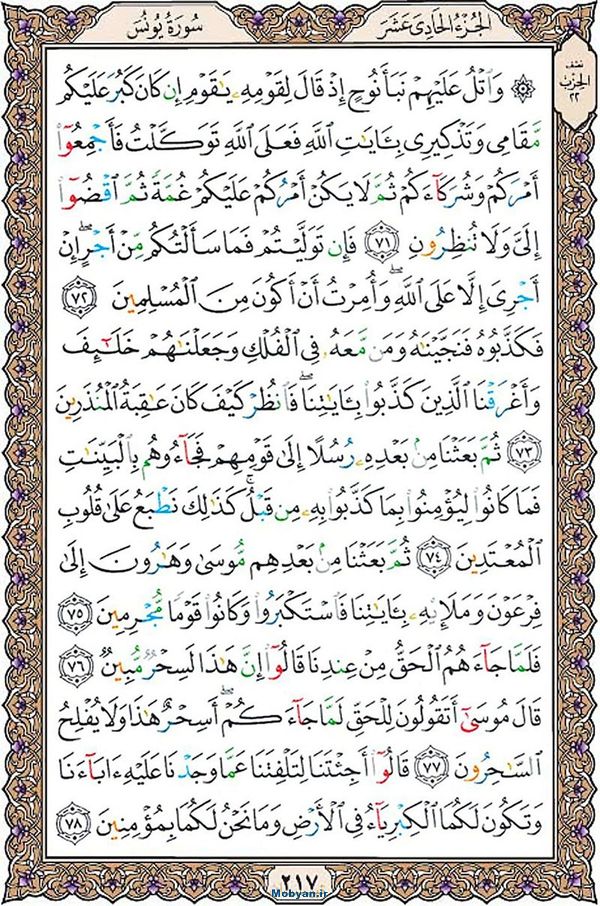 الجُزْءُ الحَادِى عَشَرَ
سُورَةُ يُونُسَ
نصف
الحِزْب
٢٢
۞ وَٱتْلُ عَلَيْهِمْ نَبَأَ نُوحٍ إِذْ قَالَ لِقَوْمِهِۦ يَٰقَوْمِ إِن كَانَ كَبُرَ عَلَيْكُم
مَّقَامِى وَتَذْكِيرِى بِـَٔايَٰتِ ٱللَّهِ فَعَلَى ٱللَّهِ تَوَكَّلْتُ فَأَجْمِعُوٓا۟
أَمْرَكُمْ وَشُرَكَآءَكُمْ ثُمَّ لَا يَكُنْ أَمْرُكُمْ عَلَيْكُمْ غُمَّةً ثُمَّ ٱقْضُوٓا۟
إِلَىَّ وَلَا تُنظِرُونِ ﴿٧١﴾ فَإِن تَوَلَّيْتُمْ فَمَا سَأَلْتُكُم مِّنْ أَجْرٍ ۖ إِنْ
أَجْرِىَ إِلَّا عَلَى ٱللَّهِ ۖ وَأُمِرْتُ أَنْ أَكُونَ مِنَ ٱلْمُسْلِمِينَ ﴿٧٢﴾
فَكَذَّبُوهُ فَنَجَّيْنَٰهُ وَمَن مَّعَهُۥ فِى ٱلْفُلْكِ وَجَعَلْنَٰهُمْ خَلَٰٓئِفَ
وَأَغْرَقْنَا ٱلَّذِينَ كَذَّبُوا۟ بِـَٔايَٰتِنَا ۖ فَٱنظُرْ كَيْفَ كَانَ عَٰقِبَةُ ٱلْمُنذَرِينَ
﴿٧٣﴾ ثُمَّ بَعَثْنَا مِنۢ بَعْدِهِۦ رُسُلًا إِلَىٰ قَوْمِهِمْ فَجَآءُوهُم بِٱلْبَيِّنَٰتِ
فَمَا كَانُوا۟ لِيُؤْمِنُوا۟ بِمَا كَذَّبُوا۟ بِهِۦ مِن قَبْلُ ۚ كَذَٰلِكَ نَطْبَعُ عَلَىٰ قُلُوبِ
ٱلْمُعْتَدِينَ ﴿٧٤﴾ ثُمَّ بَعَثْنَا مِنۢ بَعْدِهِم مُّوسَىٰ وَهَٰرُونَ إِلَىٰ
فِرْعَوْنَ وَمَلَإِي۟هِۦ بِـَٔايَٰتِنَا فَٱسْتَكْبَرُوا۟ وَكَانُوا۟ قَوْمًا مُّجْرِمِينَ ﴿٧٥﴾
فَلَمَّا جَآءَهُمُ ٱلْحَقُّ مِنْ عِندِنَا قَالُوٓا۟ إِنَّ هَٰذَا لَسِحْرٌ مُّبِينٌ ﴿٧٦﴾
قَالَ مُوسَىٰٓ أَتَقُولُونَ لِلْحَقِّ لَمَّا جَآءَكُمْ ۖ أَسِحْرٌ هَٰذَا وَلَا يُفْلِحُ
ٱلسَّٰحِرُونَ ﴿٧٧﴾ قَالُوٓا۟ أَجِئْتَنَا لِتَلْفِتَنَا عَمَّا وَجَدْنَا عَلَيْهِ ءَابَآءَنَا
وَتَكُونَ لَكُمَا ٱلْكِبْرِيَآءُ فِى ٱلْأَرْضِ وَمَا نَحْنُ لَكُمَا بِمُؤْمِنِينَ ﴿٧٨﴾
٢١٧
Mobyan.ir